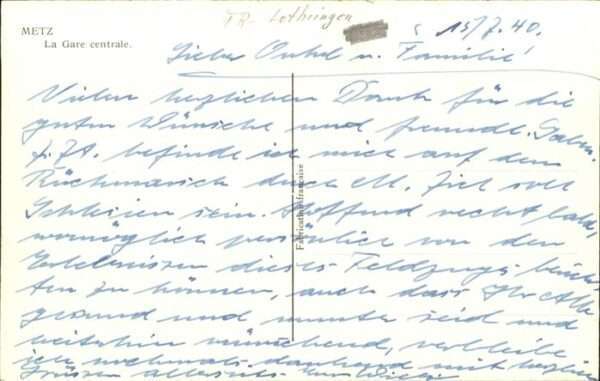 METZ
La Gare centrale.
FR- Lothringen
15/7.40.
Lieber Onkel u. Familie!
Vielen herzlichen Dank für die
guten Wünsche und freundl. Gaben.
z. Zt. befinde ich mich auf dem
Rückmarsch durch M. Ziel soll
Schlesien sein. Hoffend recht bald,
womöglich persönlich von den
Erlebnissen dieses Feldzugs berich-
ten zu können, auch dass Ihr Alle
gesund und munter seid und
weiterhin wünschend, verbleibe
ich nochmals dankend mit herzlichen
Grüssen allerseits Euer Willi
Fabrication française